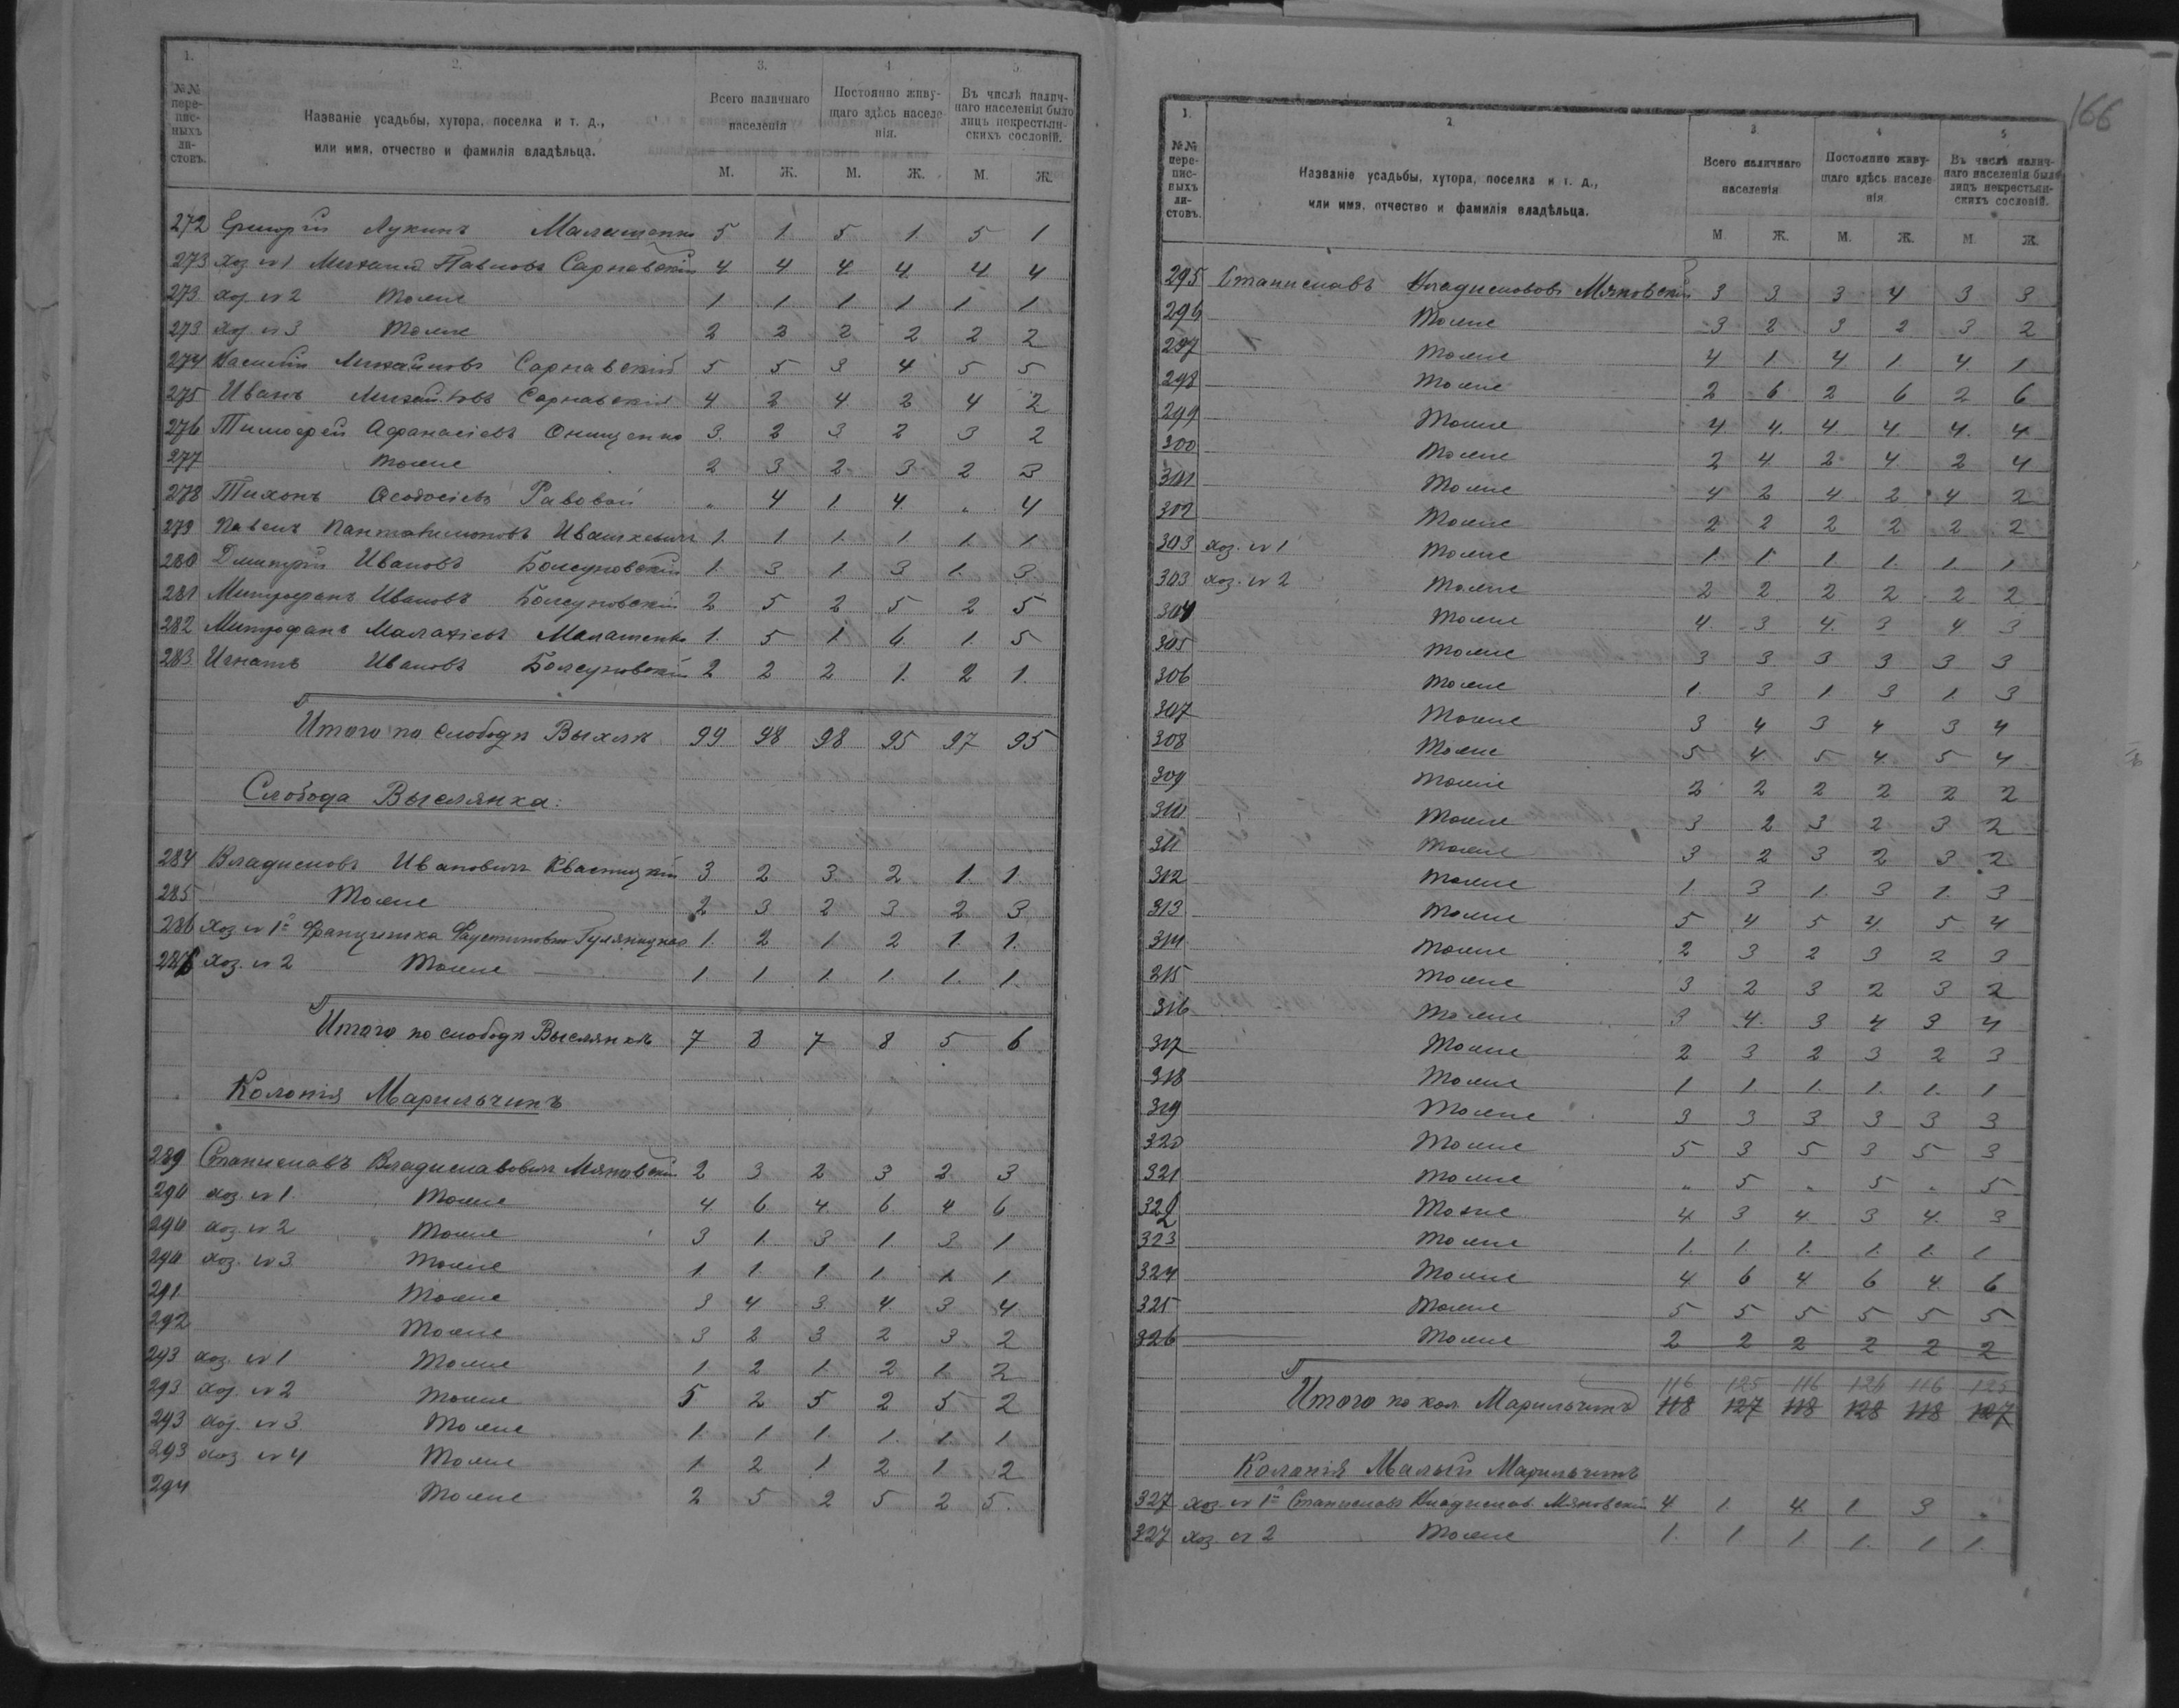 1. 2. 3. 4. 5.
№№ пере-
пис-
ныхъ
ли-
стовъ.
Названіе усадьбы, хутора, поселка и т. д.,
или имя, отчество и фамилія владѣльца.
Всего наличнаго
населенія
Постоянно живу-
щаго здѣсь населе
нія.
Въ числѣ налич-
наго населенія было
лицъ некрестьян-
скихъ сословій.
М. Ж. М. Ж. М. Ж.
272 Григорій Лукинъ Малашенко 5 1 5 1 5 1
273 хоз. №1 Михаилъ Павловъ Сарнавскій 4 4 4 4 4 4
273. хоз. №2 Тоже 1 1 1 1 1 1
273 хоз. №3 Тоже 2 2 2 2 2 2
274 Василій Михайловъ Сарнавскій 5 5 3 4 5 5
275 Иванъ Сарнавскій 4 2 4 2 4 2
276 Тимофей Афанасіевъ Онищенко 3 2 3 2 3 2
277 Тоже 2 3 2 3 2 3
278 Тихонъ Ѳеодосіевъ Равовой " 4 1 4 " 4
279 Павелъ Ивашкевичъ 1 1 1 1 1 1
280 Дмитрій Ивановъ Болсуновскій 1 3 1 3 1 3
281 Митрофанъ Ивановъ Болсуновскій 2 5 2 5 2 5
282 Митрофанъ Малахіевъ Малашенко 1 5 1 6 1 5
283 Игнатъ Ивановъ Болсуновскій 2 2 2 1 2 1
Итого по слободѣ Выхля 99 98 98 95 97 95
Слобода Выслянка:
284 Владиславъ Ивановичъ Квасницкій 3 2 3 2 1 1
285 Тоже 2 3 2 3 2 3
286 хоз №1й Францишка Фаустиновна Гуляницкая 1 2 1 2 1 1
286 хоз. №2 Тоже 1 1 1 1 1 1
Итого по слободѣ Выслянкѣ 7 8 7 8 5 6
Колонія Марильчинъ
289 Станиславъ Владиславовичъ Мяновскій 2 3 2 3 2 3
290 хоз №1. Тоже 4 6 4 6 4 6
290 хоз №2 Тоже 3 1 3 1 3 1
290 хоз. №3 Тоже 1 1 1 1 1 1
291 Тоже 3 4 3 4 3 4
292 Тоже 3 2 3 2 3 2
293 хоз. №1 Тоже 1 2 1 2 1 2
293 хоз. №2 Тоже 5 2 5 2 5 2
293 хоз. №3 Тоже 1 1 1 1 1 1
293 хоз №4 Тоже 1 2 1 2 1 2
294 Тоже 2 5 2 5 2 5
166
1. 2 3 4 5
№№ пере-
пис-
ныхъ
ли-
стовъ.
Названіе усадьбы, хутора, поселка и т. д.,
или имя, отчество и фамилія владѣльца.
Всего наличнаго
населенія
Постоянно живу-
щаго здѣсь населе
нія
Въ числѣ налич-
наго населенія было
лицъ некрестьян-
скихъ сословій.
М. Ж. М. Ж. М. Ж.
295 Станиславъ Владиславовъ Мяновскій 3 3 3 4 3 3
296 Тоже 3 2 3 2 3 2
297 Тоже 4 1 4 1 4 1
298 Тоже 2 6 2 6 2 6
299 Тоже 4 4 4 4 4 4
300 Тоже 2 4 2 4 2 4
301 Тоже 4 2 4 2 4 2
302 Тоже 2 2 2 2 2 2
303 хоз. №1 Тоже 1 1 1 1 1 1
303 хоз. №2 Тоже 2 2 2 2 2 2
304 Тоже 4 3 4 3 4 3
305 Тоже 3 3 3 3 3 3
306 Тоже 1 3 1 3 1 3
307 Тоже 3 4 3 4 3 4
308 Тоже 5 4 5 4 5 4
309 Тоже 2 2 2 2 2 2
310 Тоже 3 2 3 2 3 2
311 Тоже 3 2 3 2 3 2
312 Тоже 1 3 1 3 1 3
313 Тоже 5 4 5 4 5 4
314 Тоже 2 3 2 3 2 3
315 Тоже 3 2 3 2 3 2
316 Тоже 3 4 3 4 3 4
317 Тоже 2 3 2 3 2 3
318 Тоже 1 1 1 1 1 1
319 Тоже 3 3 3 3 3 3
320 Тоже 5 3 5 3 5 3
321 Тоже " 5 " 5 " 5
322 Тоже 4 3 4 3 4 3
323 Тоже 1 1 1 1 1 1
324 Тоже 4 6 4 6 4 6
325 Тоже 5 5 5 5 5 5
326 Тоже 2 2 2 2 2 2
116 125 116 126 116 125
Итого по кол. Марильчинъ 118 127 118 128 118 127
Колонія Малый Марильчинъ
327 хоз №1й Станиславъ Владислав. Мяновскій 4 1 4 1 3 "
327 хоз №2 Тоже 1 1 1 1 1 1